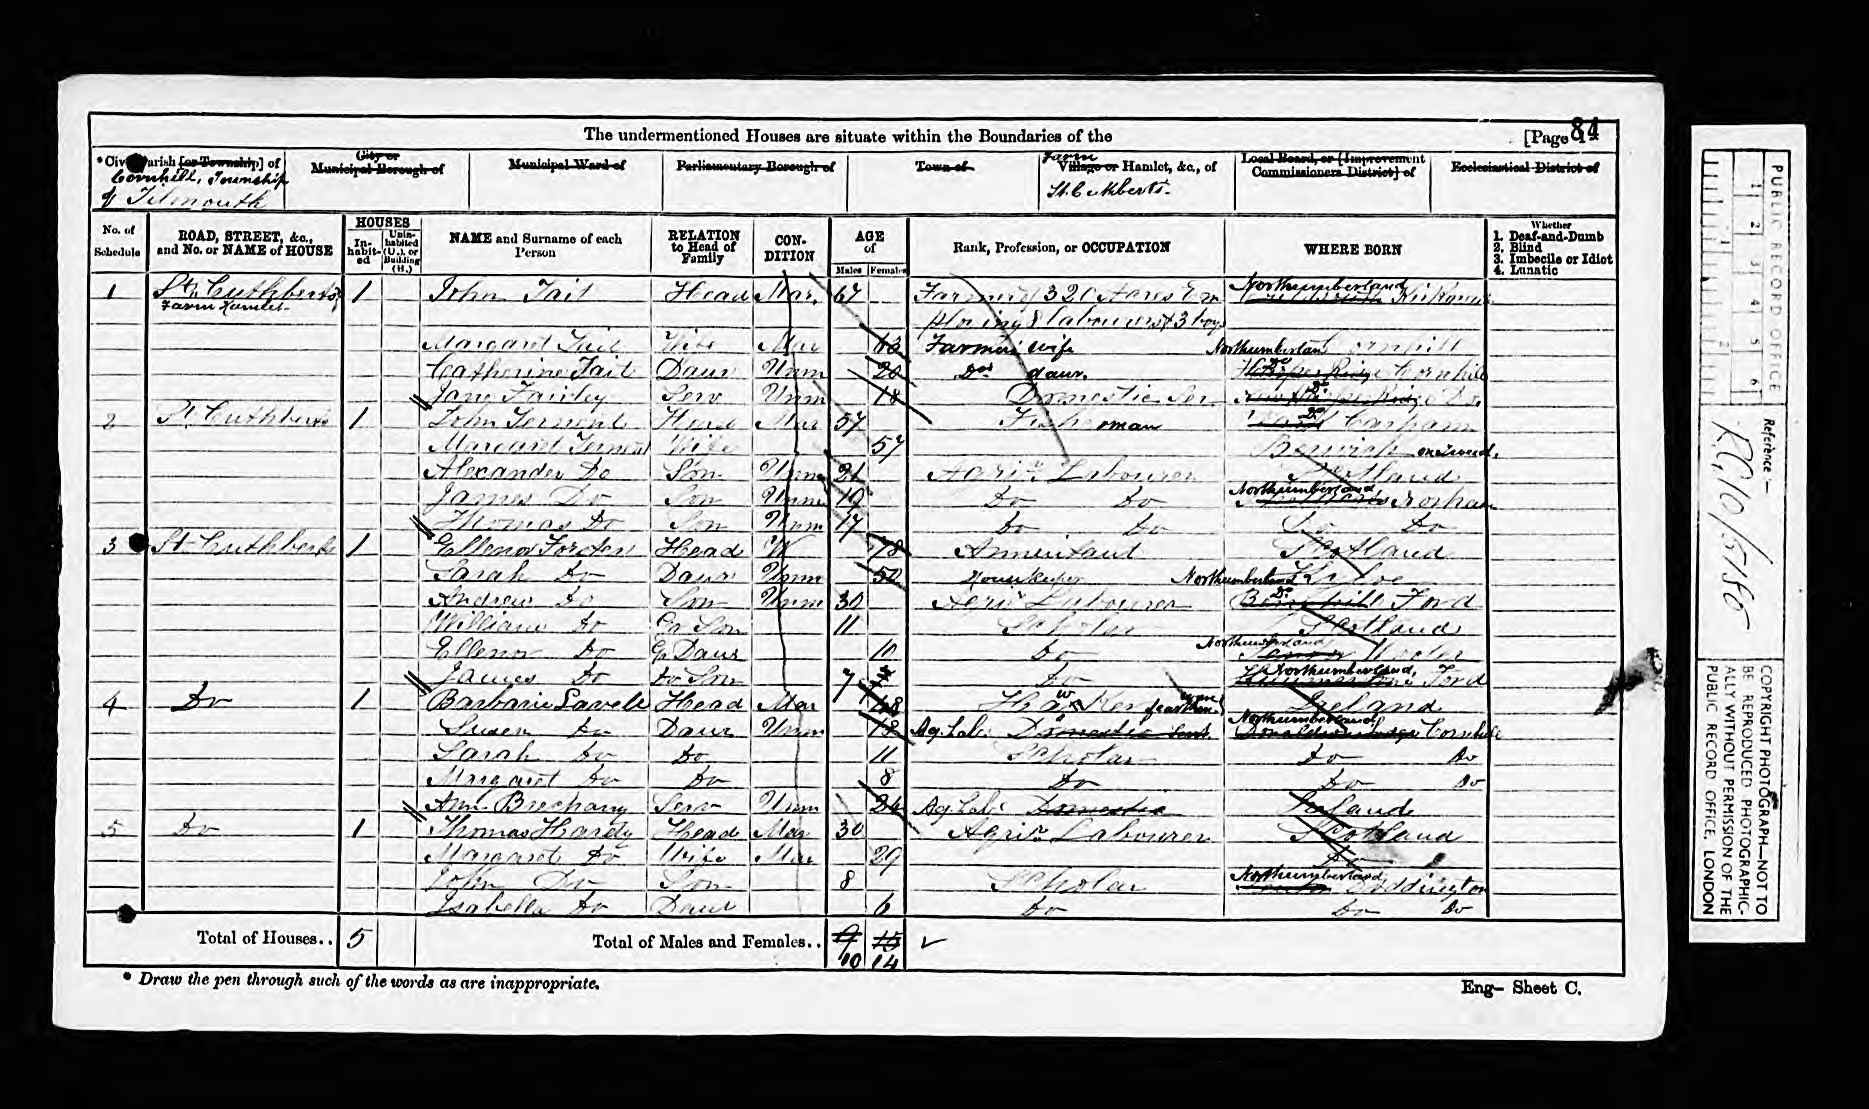 The undermentioned Houses are situate within the Boundaries of the
[Page 1
84
* Civil Parish [or Township] of
Cornhill, Township
of Tilmouth
City or
Municipal Borough of
Municipal Ward of
Parliamentary Borough of
Town of
Farm
Village or Hamlet, &c., of
St. Cuthberts.
Local Board, or [Improvement
Commissioners District] of
Ecclesiastical District of
No. of Schedule
ROAD, STREET, &c., and No. or NAME of HOUSE
HOUSES
In-habit-ed
Unin-habited (U.), or Building (B.)
NAME and Surname of each Person
RELATION to Head of Family
CON-DITION
AGE of
Males
Females
Rank, Profession, or OCCUPATION
WHERE BORN
Whether
1. Deaf-and-Dumb
2. Blind
3. Imbecile or Idiot
4. Lunatic
1 St. Cuthberts 1 John Tait Head Mar. 67 Farming 320 Acres Em Northumberland
Farm Hamlet
ploying 8 labourers & 3 boys
Margaret Tait Wife Mar 63 Farmers wife Northumberland Cornhill
Catherine Tait Daur Unm 20 Do. daur. Do Cornhill
Jane Fairley Serv Unm 18 Domestic Ser. Do Do.
2 St. Cuthberts 1 John Head Mar 57 Fisherman Do Carham
Margaret Wife 57 Berwick on Tweed.
Alexander Do Son Unm 21 Agri. Labourer Scotland
James Do Son Unm 19 Do Do Northumberland Norham
Thomas Do Son Unm 17 Do Do Do Do
3 St. Cuthberts 1 Ellenor Head W 78 Annuitant Scotland
Sarah Do Daur Unm 50 Housekeeper Northumberland Kyloe
Andrew Do Son Unm 30 Agri. Labourer Do Ford
William Do Gr Son 11 Scholar Scotland
Ellenor Do Gr Daur 10 Do Northumberland
James Do Do Son 7 Do Northumberland, Ford
4 Do 1 Barbarie Lavell Head Mar 48 Hawker Ireland
Susan Do Daur Unm 18 Ag. Lab. Domestic Serv. Northumberland Cornhill
Sarah Do Do 11 Scholar Do Do
Margaret Do Do 8 Do Do Do
Ann Brechany Serv Unm 24 Ag. Lab. Domestic Ireland
5 Do 1 Thomas Hardy Head Mar 30 Agri. Labourer Scotland
Margaret Do Wife Mar 29 Do
John Do Son 8 Scholar Northumberland Doddington
Isabella Do Daur 6 Do Do Do
Total of Houses.. 5
Total of Males and Females.. 9 15
10 14
* Draw the pen through such of the words as are inappropriate.
Eng- Sheet C.
PUBLIC RECORD OFFICE
1 2 3 4 5 6
1 2
Reference:-
RG10/5186
COPYRIGHT PHOTOGRAPH—NOT TO
BE REPRODUCED PHOTOGRAPHIC-
ALLY WITHOUT PERMISSION OF THE
PUBLIC RECORD OFFICE, LONDON